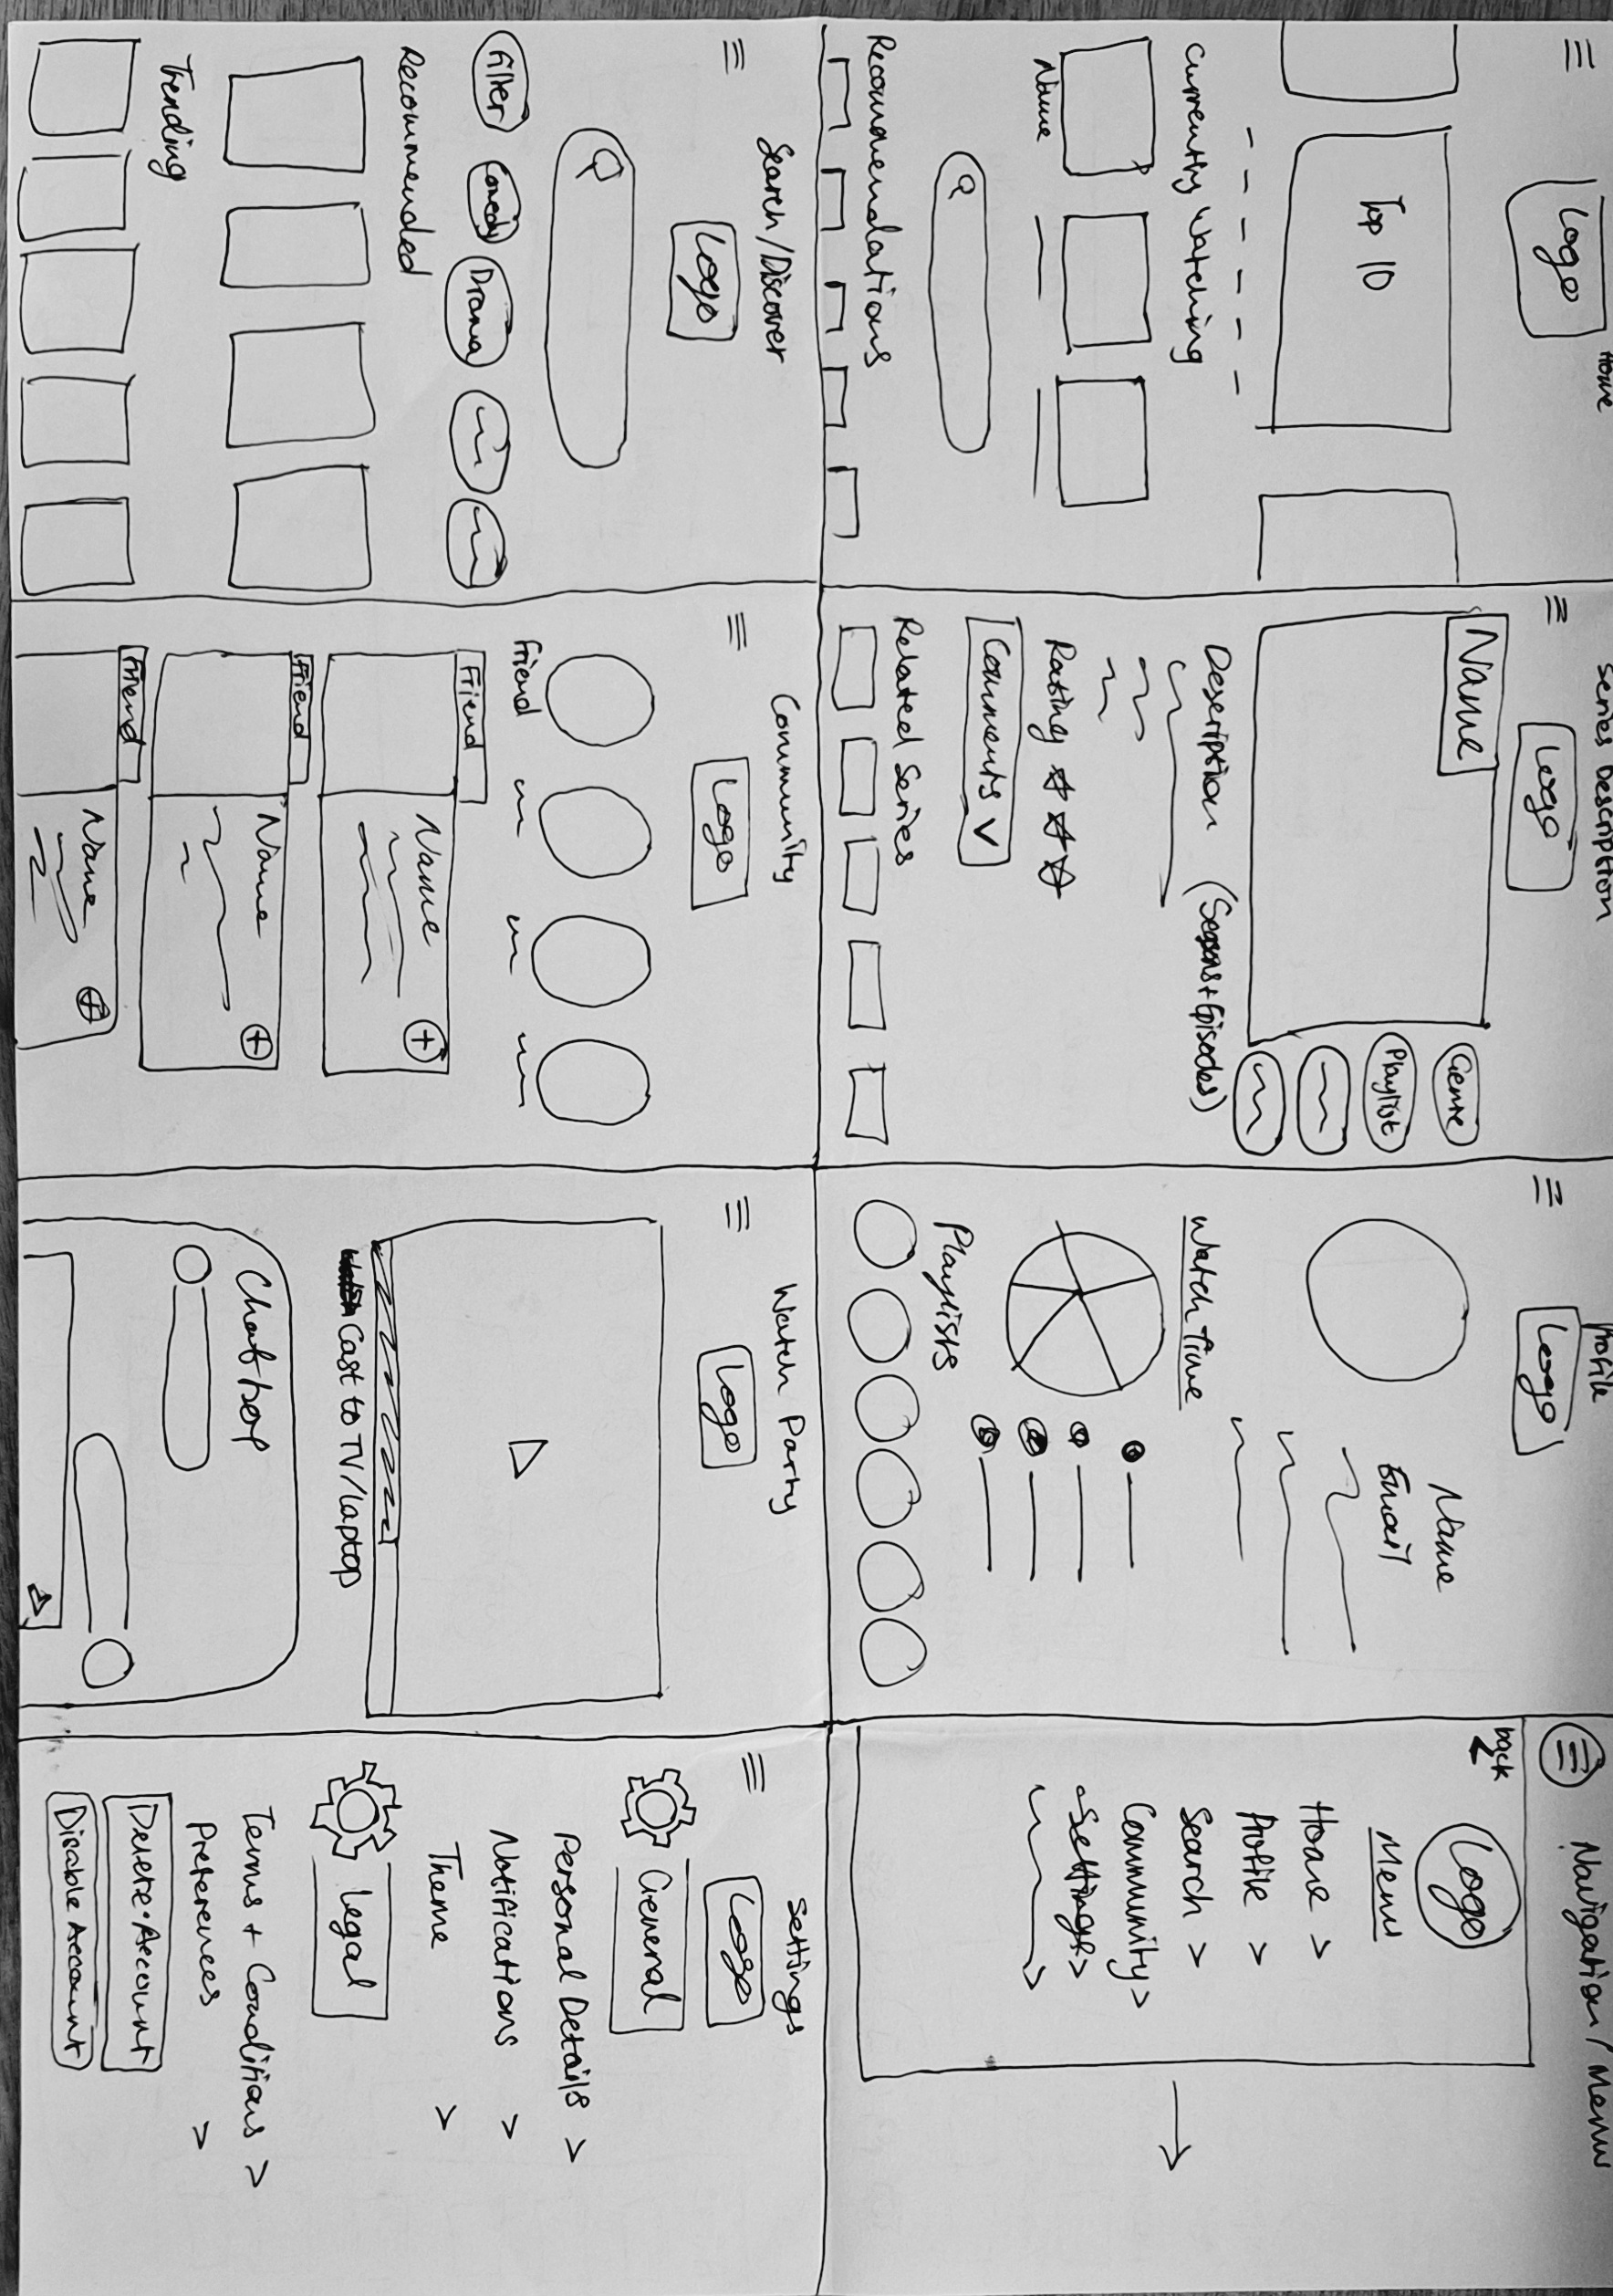 Home
Logo
Top 10
Currently Watching
Name
Recommendations
Series Description
Logo
Name
Genre
Playlist
Description (Seasons + Episodes)
Rating
Comments
Related Series
Profile
Logo
Name
Email
Watch Time
Playlists
Navigation / Menu
back
Logo
Menu
Home >
Profile >
Search >
Community >
Settings >
Search/Discover
Logo
Filter
Comedy
Drama
Recommended
Trending
Community
Logo
Friend
Friend
Name
+
Friend
Name
+
Friend
Name
+
Watch Party
Logo
Cast to TV/laptop
Settings
Logo
General
Personal Details >
Notifications >
Theme >
Legal
Terms + Conditions >
Preferences >
Delete Account
Disable Account